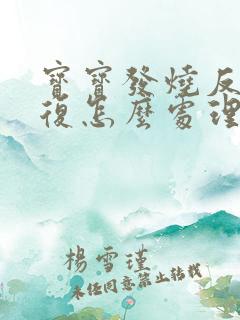 寶寶發燒反
復怎麼處理
楊雪瑾
未经同意禁止转载